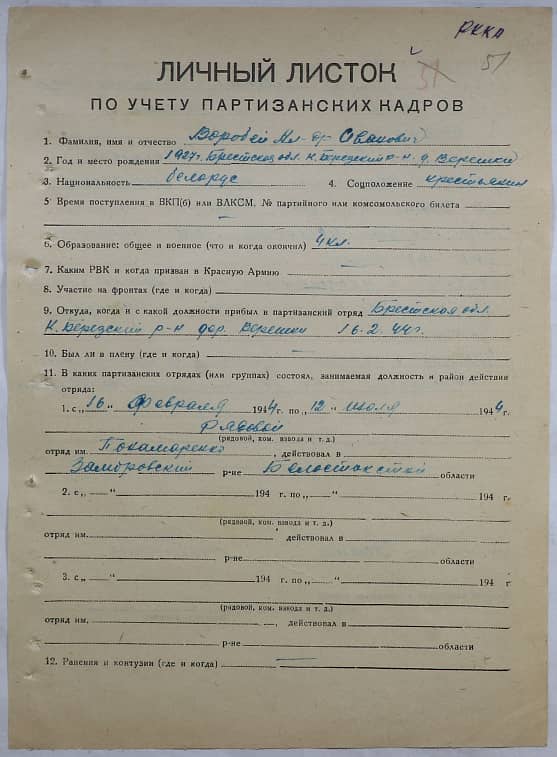 РККА
51
51
ЛИЧНЫЙ ЛИСТОК
ПО УЧЕТУ ПАРТИЗАНСКИХ КАДРОВ
1. Фамилия, имя и отчество Воробей Ал-др Иванович
2. Год и место рождения 1927г. Брестская обл. К. Березский р-н д. Верешки
3. Национальность белорус 4. Соцположение крестьянин
5 Время поступления в ВКП(б) или ВЛКСМ, № партийного или комсомольского билета
—
6. Образование: общее и военное (что и когда окончил) 4 кл.
7. Каким РВК и когда призван в Красную Армию —
8. Участие на фронтах (где и когда) —
9. Откуда, когда и с какой должности прибыл в партизанский отряд Брестская обл.
К. Березский р-н дер. Верешки 16.2.44г.
10. Был ли в плену (где и когда) —
11. В каких партизанских отрядах (или группах) состоял, занимаемая должность и район действия
отряда:
1. с „16" Февраля 1944 г. по „12" июля 1944 г.
Рядовой
(рядовой, ком. взвода и т. д.)
отряд им. Понамаренко, действовал в
Замбровский р-не Белостокской области
2. с „ — " 194 г. по „ — " 194 г.
(рядовой, ком. взвода и т. д.)
отряд им. , действовал в
р-не области
3. с „ — " 194 г. по „ — " 194 г
(рядовой, ком. взвода и т. д.)
отряд им. , действовал в
р-не области
12. Ранения и контузии (где и когда) —